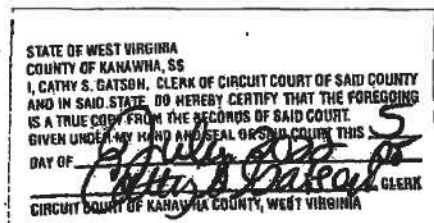 STATE OF WEST VIRGINIA
COUNTY OF KANAWHA, SS
I, CATHY S. GATSON, CLERK OF CIRCUIT COURT OF SAID COUNTY
AND IN SAID STATE, DO HEREBY CERTIFY THAT THE FOREGOING
IS A TRUE COPY FROM THE RECORDS OF SAID COURT.
GIVEN UNDER MY HAND AND SEAL OF SAID COURT THIS 5
DAY OF July
Cathy S. Gatson CLERK
CIRCUIT COURT OF KANAWHA COUNTY, WEST VIRGINIA